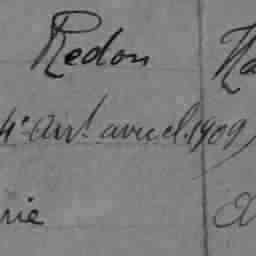 Redon
4e Arrt. avril 1909,
rie